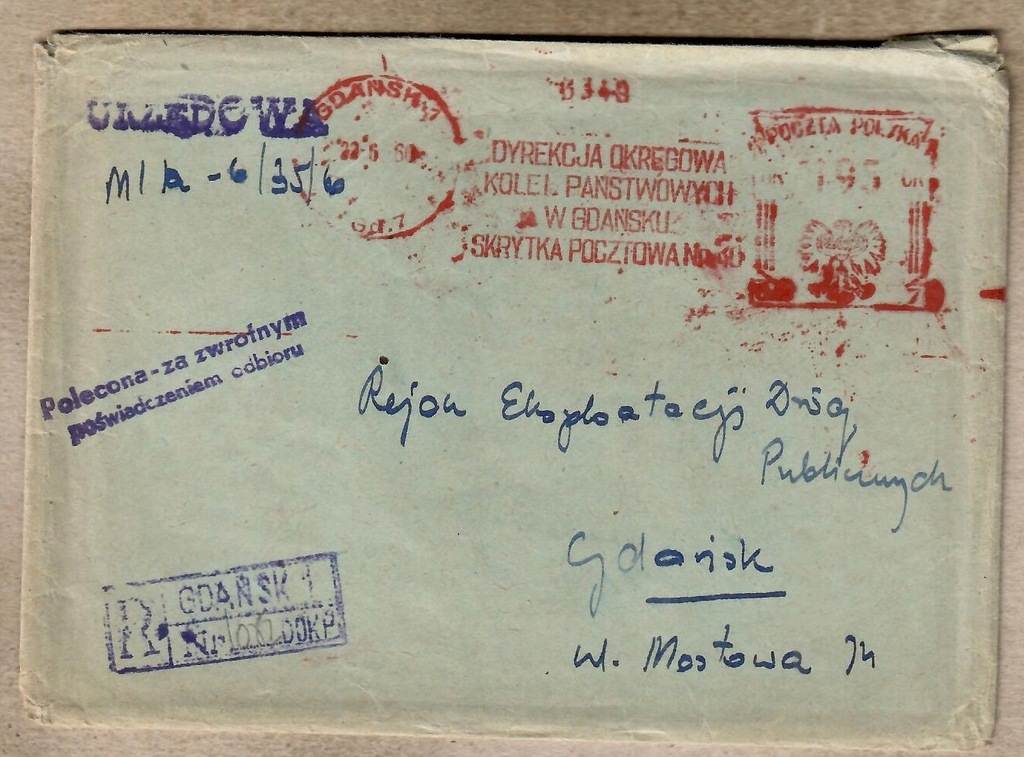 URZĘDOWA
M/A - 6/35/6
GDAŃSK
22 6 60
DYREKCJA OKRĘGOWA
KOLEI PAŃSTWOWYCH
W GDAŃSKU
SKRYTKA POCZTOWA Nr
POCZTA POLSKA
Polecona-za zwrotnym
poświadczeniem odbioru
Rejon Eksploatacji Dróg
Publicznych
Gdańsk
ul. Mostowa
R GDAŃSK 1
Nr DOKP